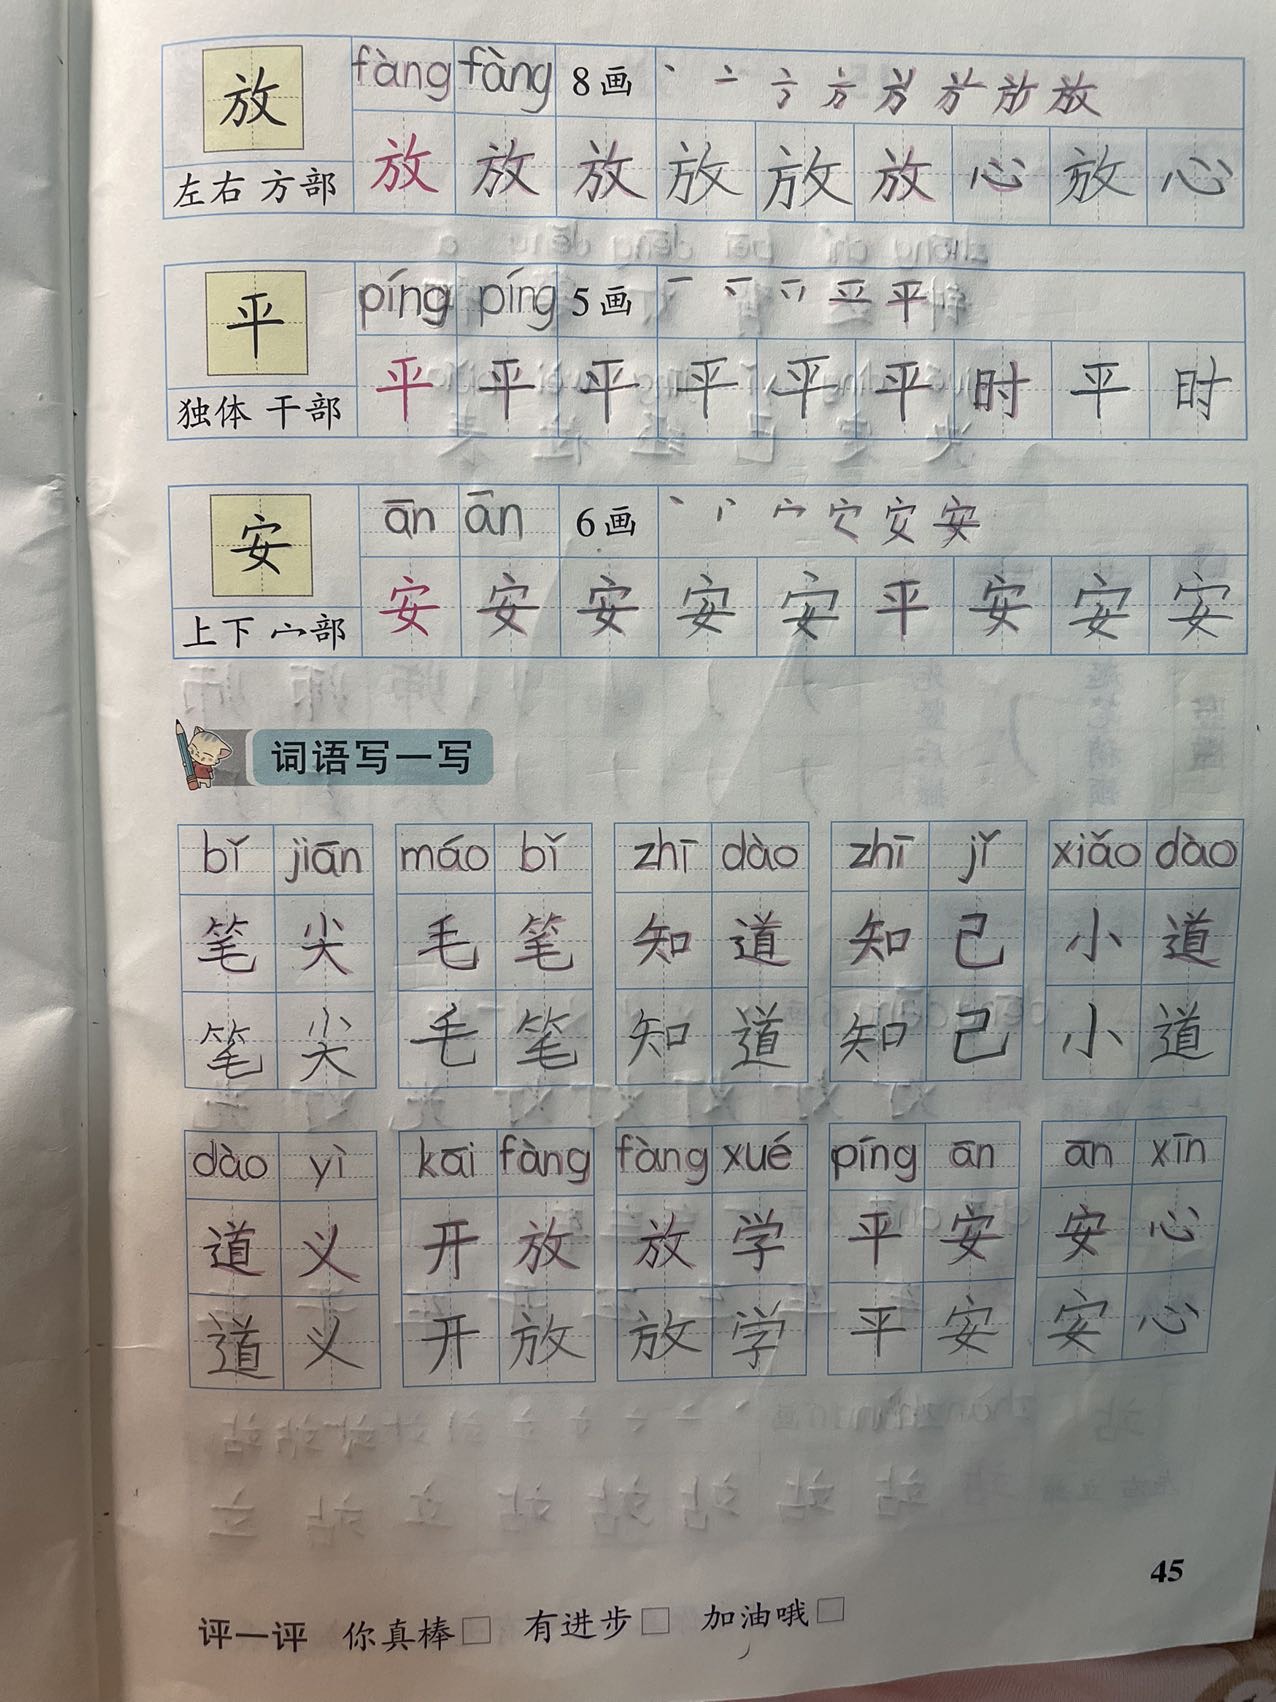 放 fàng fàng 8画 丶 亠 放
左右 方部 放 放 放 放 放 放 心 放 心
平 píng píng 5画 一 平
独体 干部 平 平 平 平 平 平 时 平 时
安 ān ān 6画 丶 宀 安
上下 宀部 安 安 安 安 安 平 安 安 安
词语写一写
bǐ jiān máo bǐ zhī dào zhī jǐ xiǎo dào
笔 尖 毛 笔 知 道 知 己 小 道
笔 尖 毛 笔 知 道 知 己 小 道
dào yì kāi fàng fàng xué píng ān ān xīn
道 义 开 放 放 学 平 安 安 心
道 义 开 放 放 学 平 安 安 心
45
评一评 你真棒 有进步 加油哦